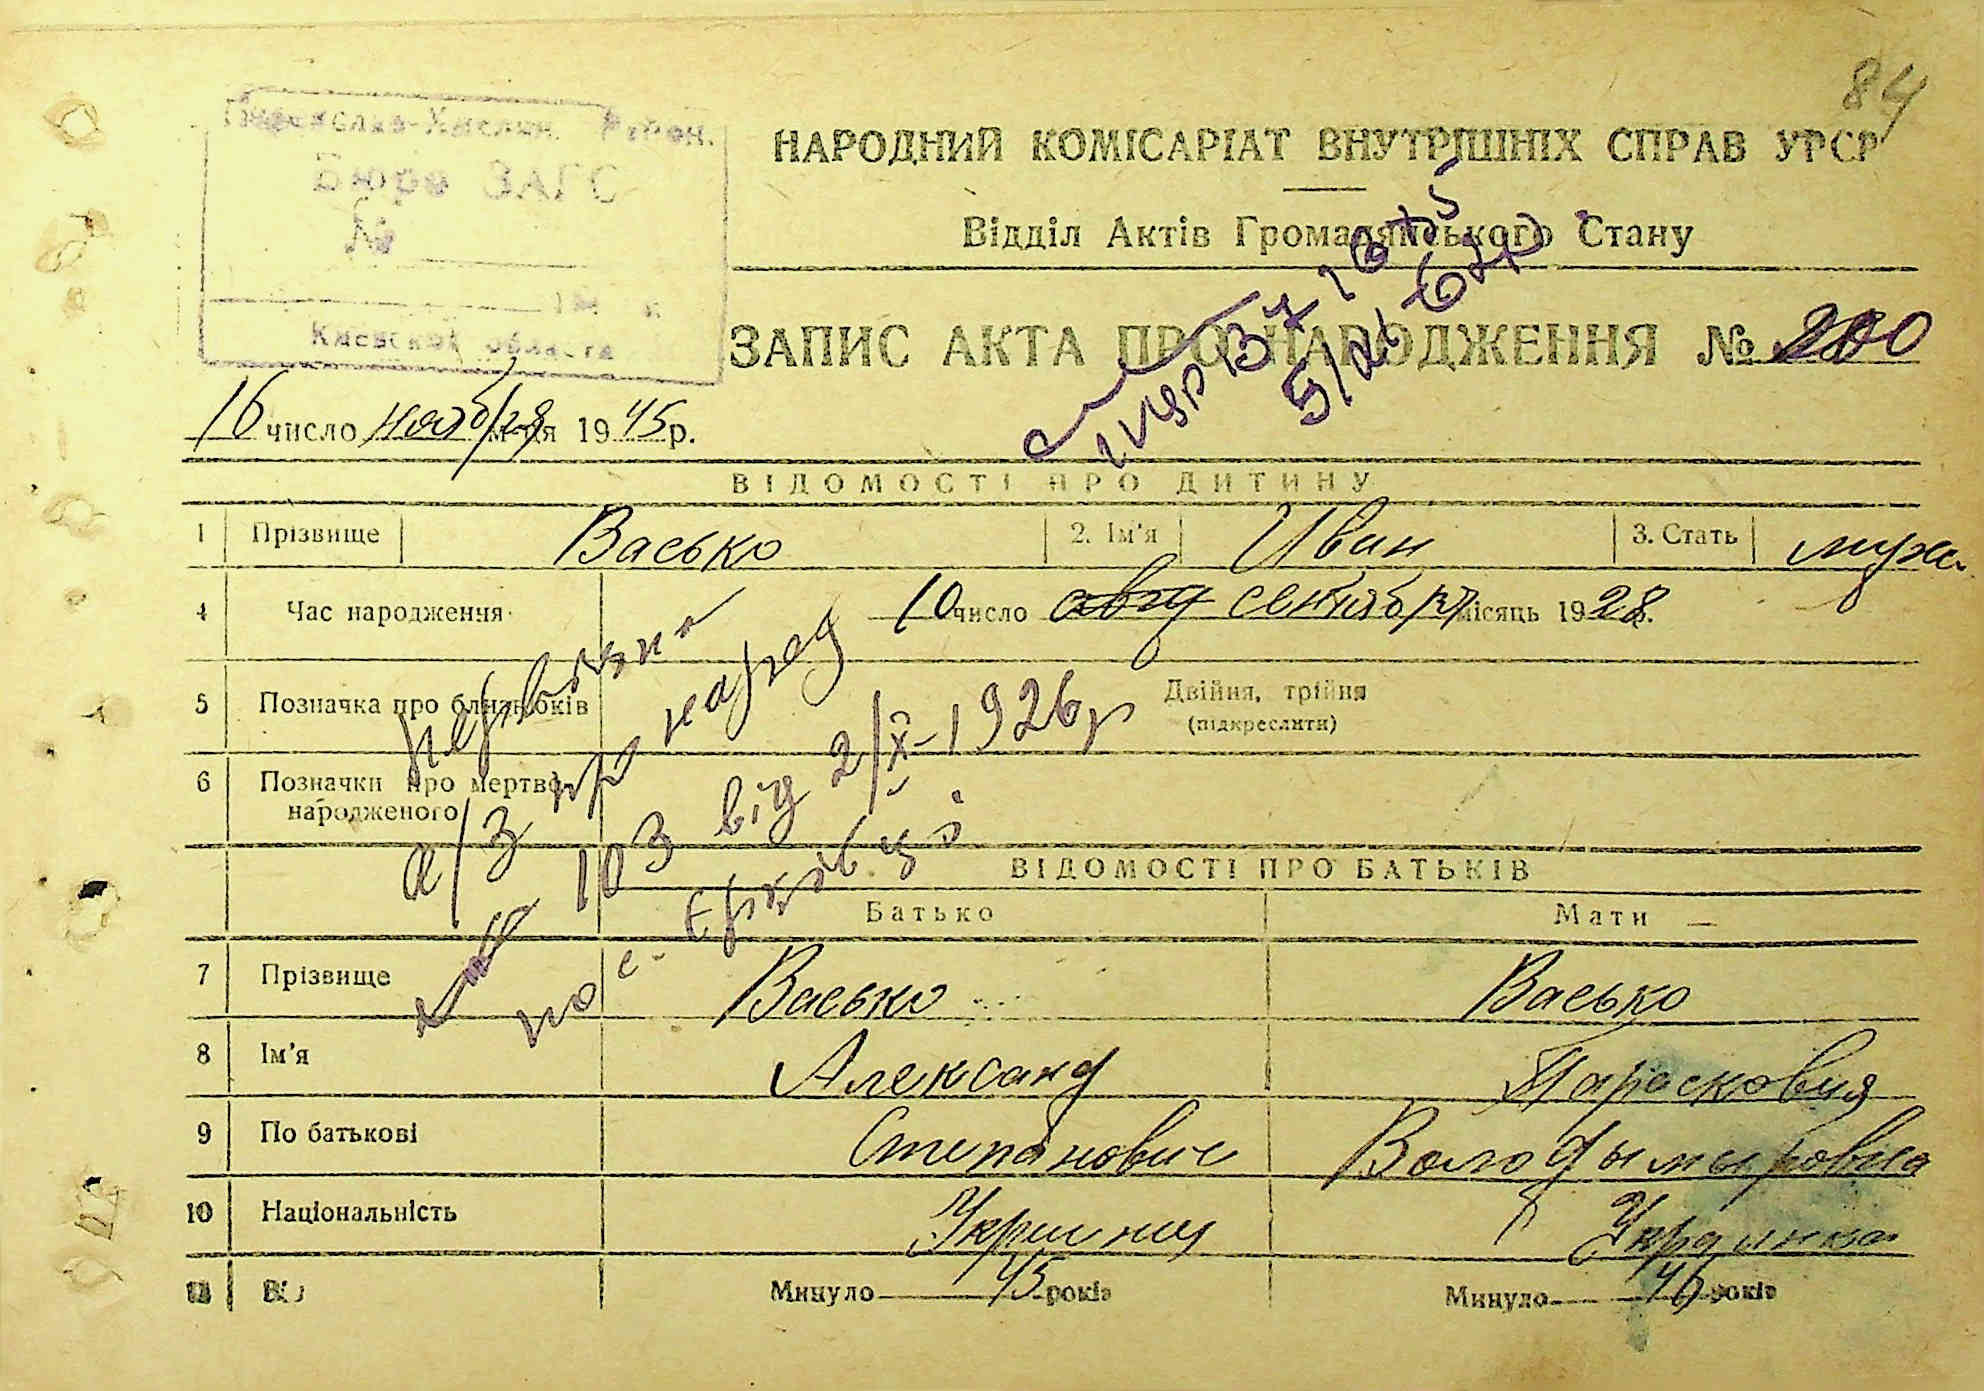 84
Район.
Бюро ЗАГС
№
Киевской области
НАРОДНИЙ КОМІСАРІАТ ВНУТРІШНІХ СПРАВ УРСР
Відділ Актів Громадянського Стану
ЗАПИС АКТА ПРО НАРОДЖЕННЯ № 200
16 число ноября м-ця 1945 р.
ВІДОМОСТІ ПРО ДИТИНУ
1 Прізвище Васько 2. Ім'я Иван 3. Стать муж.
4 Час народження 10 число авгу сентября місяць 1928 р.
5 Позначка про близнюків Двійня, трійня
(підкреслити)
6 Позначки про мертво-
народженого
первинний
а/з про народ
103 від 2/X-1926р
по с. Єрківці
ВІДОМОСТІ ПРО БАТЬКІВ
Батько Мати
7 Прізвище Васько Васько
8 Ім'я Александ Парасковия
9 По батькові Степанович Володымыровна
10 Національність Украинец Украинка
11 Вік Минуло 45 років Минуло 46 років